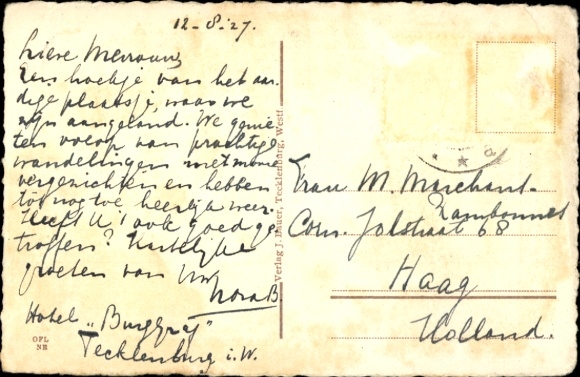 12-8-'27.
Lieve Mevrouw,
Een hoekje van het aar-
dige plaatsje, waar we
zijn aangeland. We genie-
ten volop van prachtige
wandelingen met mooie
vergezichten en hebben
tot nog toe heerlijk weer.
Heeft U 't ook goed ge-
troffen? Hartelijke
groeten van Uw
Nora B.
Hotel "Burggraf"
Tecklenburg i.W.
OFL
NE
Verlag J. Bauer, Tecklenburg, Westf.
Frau M. Marchant-
Rambonnet
Corn. Jolstraat 68
Haag
Holland.